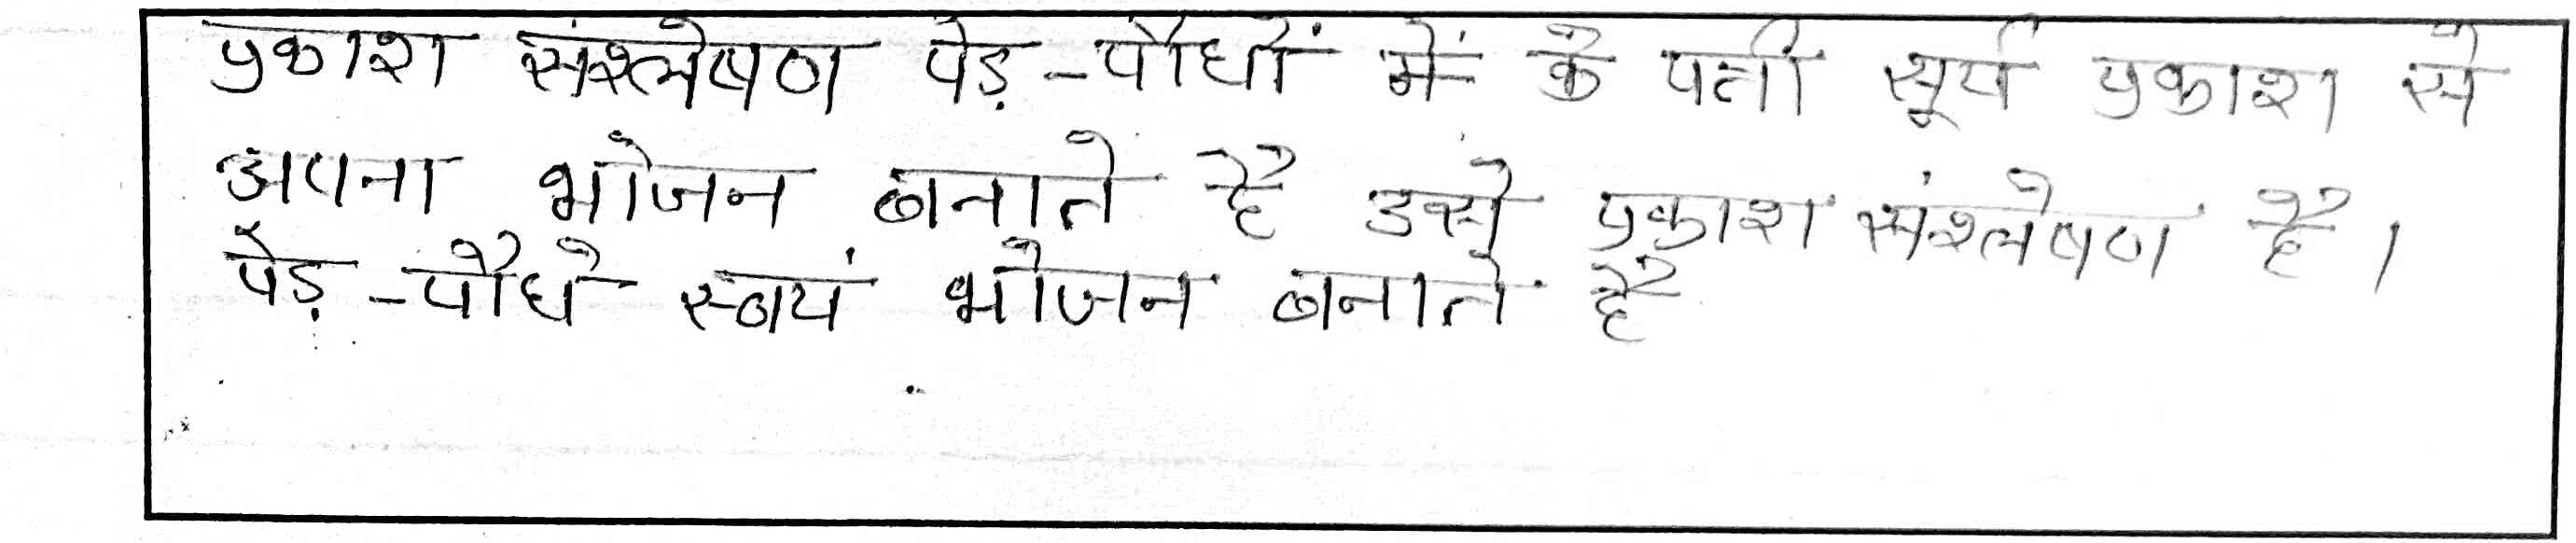 प्रकाश संश्लेषण पेड़-पौधों में के पत्ती सूर्य प्रकाश से
अपना भोजन बनाते है उसे प्रकाश संश्लेषण है।
पेड़-पौधे स्वयं भोजन बनाते है